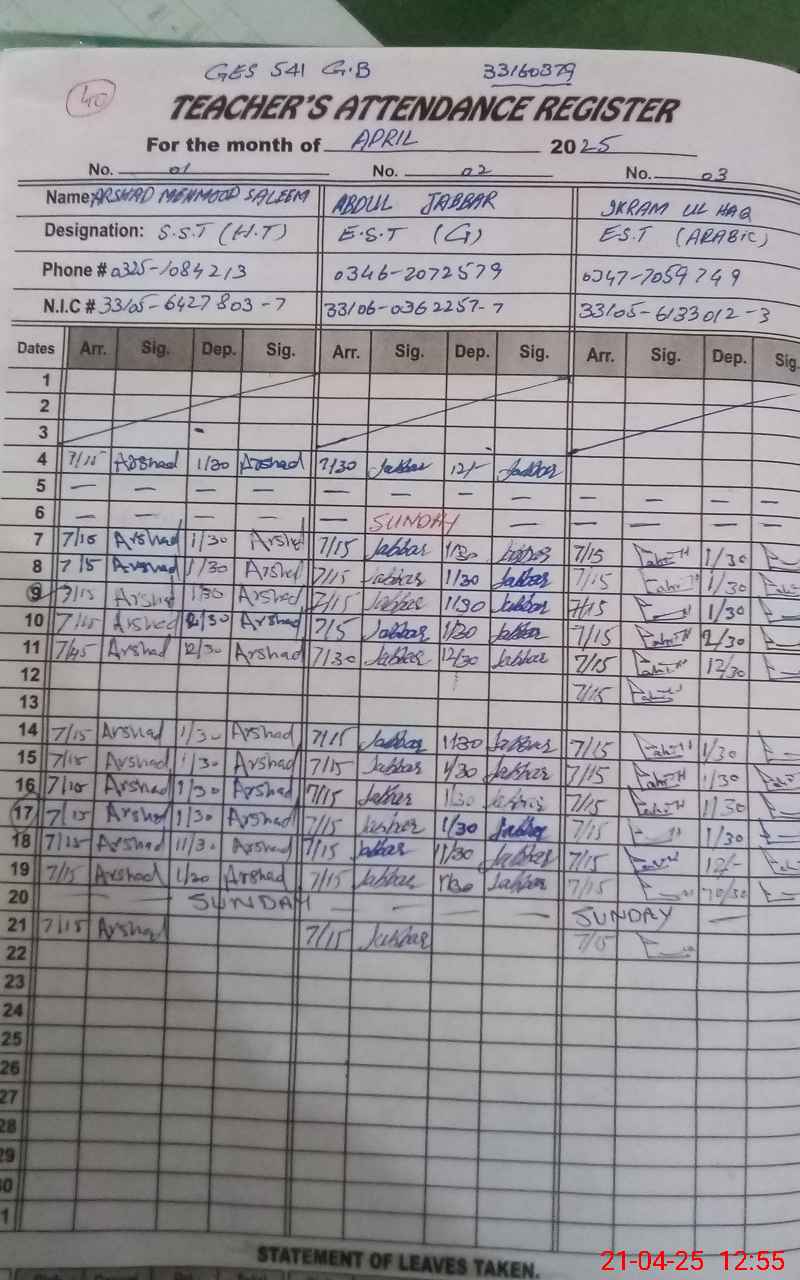 GES 541 G.B 33160379
40
TEACHER'S ATTENDANCE REGISTER
For the month of APRIL 2025
No. 01 No. 02 No. 03
Name: ARSHAD MEHMOOD SALEEM ABDUL JABBAR IKRAM UL HAQ
Designation: S.S.T (H.T) E.S.T (G) E.S.T (ARABIC)
Phone # 0325-1084213 0346-2072579 0347-7059749
N.I.C # 33105-6427803-7 33106-0362257-7 33105-6133012-3
Dates Arr. Sig. Dep. Sig. Arr. Sig. Dep. Sig. Arr. Sig. Dep. Sig.
1
2
3
4 7/15 Arshad 1/30 Arshad 7/30 Jabbar 12/- Jabbar
5 — — — — — — — — — — — —
6 — — — — — SUNDAY — — — — —
7 7/15 Arshad 1/30 Arshd 7/15 Jabbar 1/30 Jabbar 7/15 1/30
8 7/15 Arshad 1/30 Arshd 7/15 Jabbar 1/30 Jabbar 7/15 1/30
9 7/15 Arshad 1/30 Arshad 7/15 Jabbar 1/30 Jabbar 7/15 1/30
10 7/15 Arshad 30 Arshad 7/5 Jabbar 1/30 Jabbar 7/15 /30
11 7/45 Arshad 12/30 Arshad 7/30 Jabbar 12/30 Jabbar 7/15 12/30
12 7/15
13
14 7/15 Arshad 1/30 Arshad 7/15 Jabbar 1/30 Jabbar 7/15 1/30
15 7/15 Arshad 1/30 Arshad 7/15 Jabbar 1/30 Jabbar 7/15 1/30
16 7/15 Arshad 1/30 Arshad 7/15 Jabbar 1/30 Jabbar 7/15 1/30
17 7/15 Arshad 1/30 Arshad 7/15 Jabbar 1/30 Jabbar 7/15 1/30
18 7/15 Arshad 11/30 Arshad 7/15 Jabbar 11/30 Jabbar 7/15 12/-
19 7/15 Arshad 1/30 Arshad 7/15 Jabbar 1/30 Jabbar 7/15
20 — — SUNDAY — — — — SUNDAY —
21 7/15 Arshad 7/15 Jabbar 7/15
22
23
24
25
26
27
28
29
30
31
STATEMENT OF LEAVES TAKEN.
21-04-25 12:55